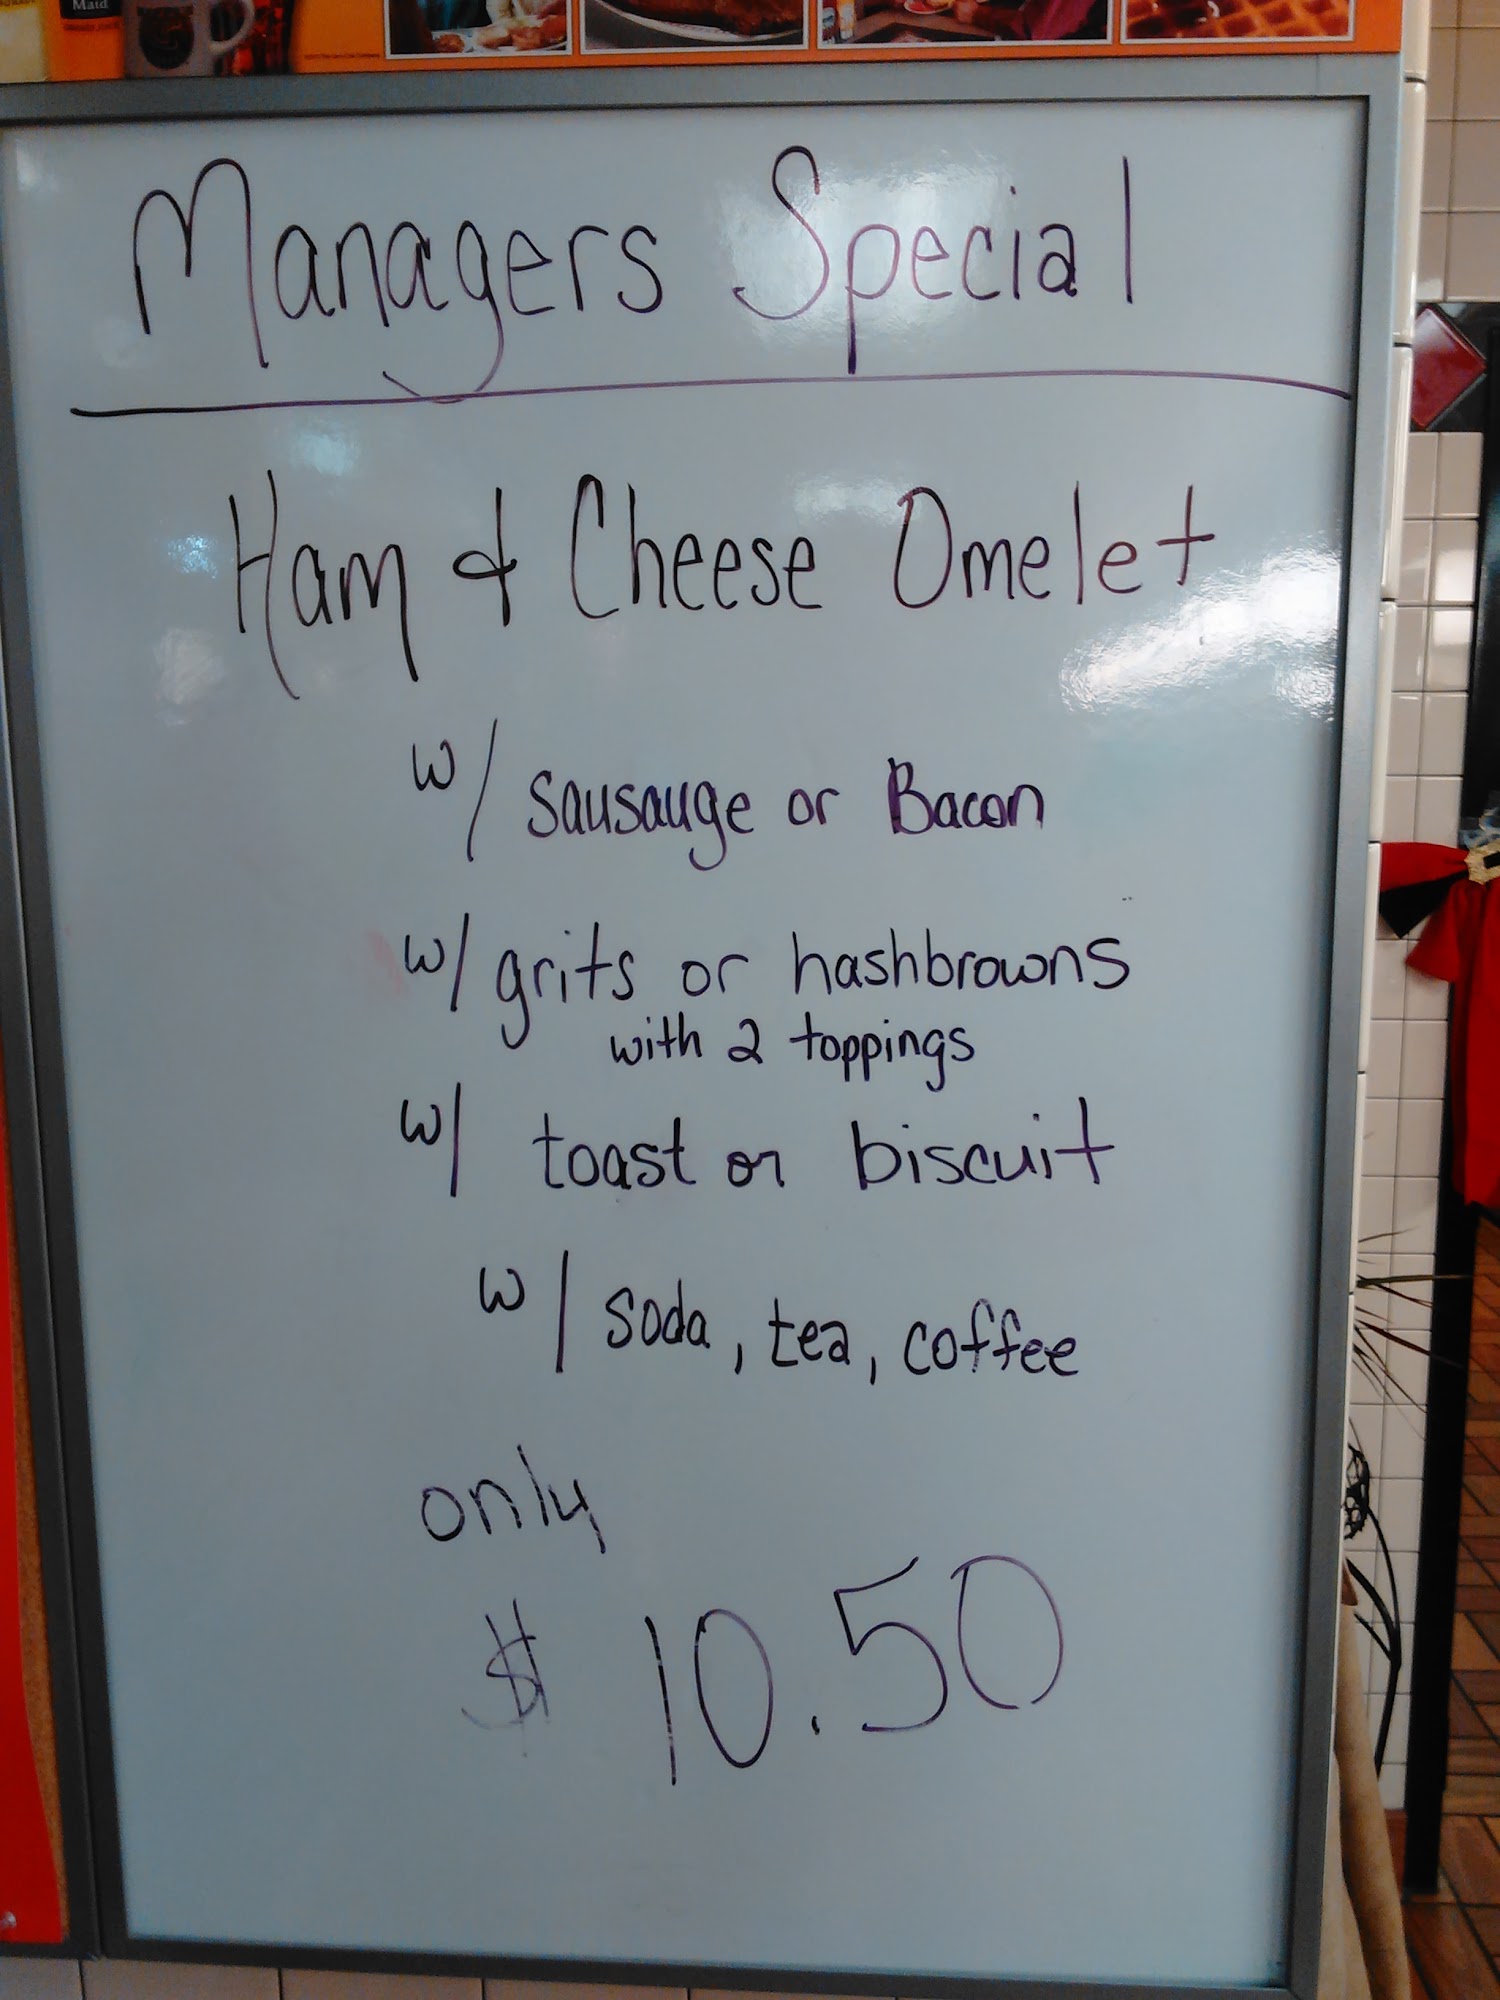 Maid
Managers Special
Ham & Cheese Omelet
w/ sausauge or Bacon
w/ grits or hashbrowns
with 2 toppings
w/ toast or biscuit
w/ soda, tea, coffee
only
$ 10.50